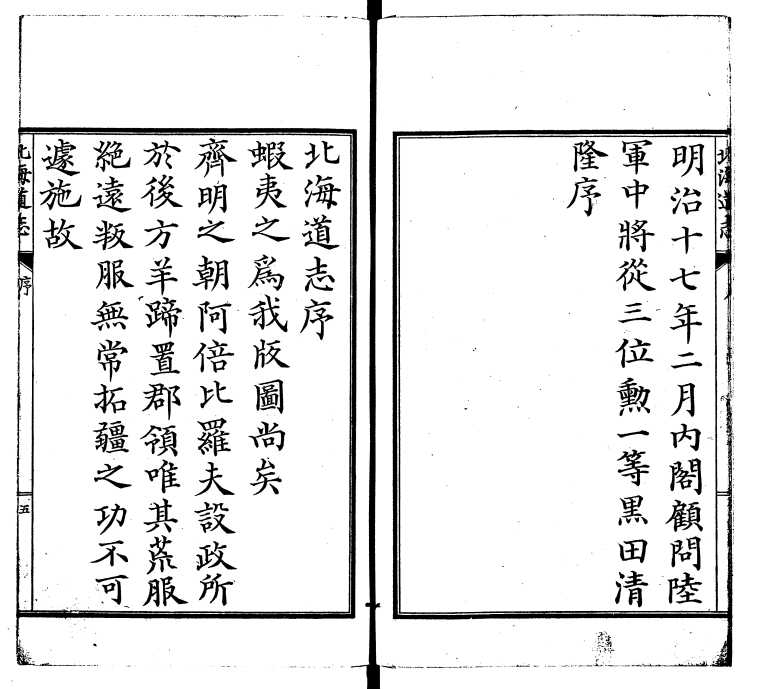 明治十七年二月內閣顧問陸
軍中將從三位勳一等黑田清
隆序
北海道志序
蝦夷之爲我版圖尚矣
齊明之朝阿倍比羅夫設政所
於後方羊蹄置郡領唯其荒服
絶遠叛服無常拓疆之功不可
遽施故
北海道志
序
五